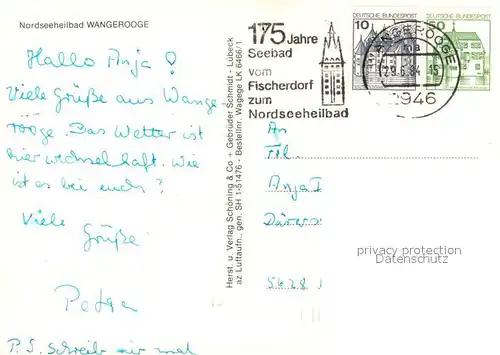 Nordseeheilbad WANGEROOGE
Hallo Anja !
Viele Grüße aus Wange-
rooge. Das Wetter ist
hier wechselhaft. Wie
ist es bei euch?
Viele
Grüße
Petra
P.S. Schreib mir mal
Herst. u. Verlag Schöning & Co + Gebrüder Schmidt - Lübeck
az Luftaufn., gen. SH 1-51476 - Bestellnr. Wagege LK 6466/1
175 Jahre
Seebad
vom
Fischerdorf
zum
Nordseeheilbad
DEUTSCHE BUNDESPOST
10
DEUTSCHE BUNDESPOST
50
WANGEROOGE
ma
29.6.84
15
2946
An
Frl.
Anja
5628
privacy protection
Datenschutz